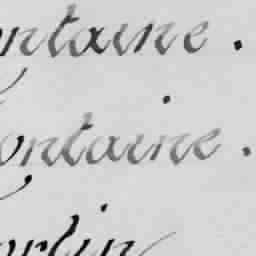 ontaine.
ontaine.
orlin